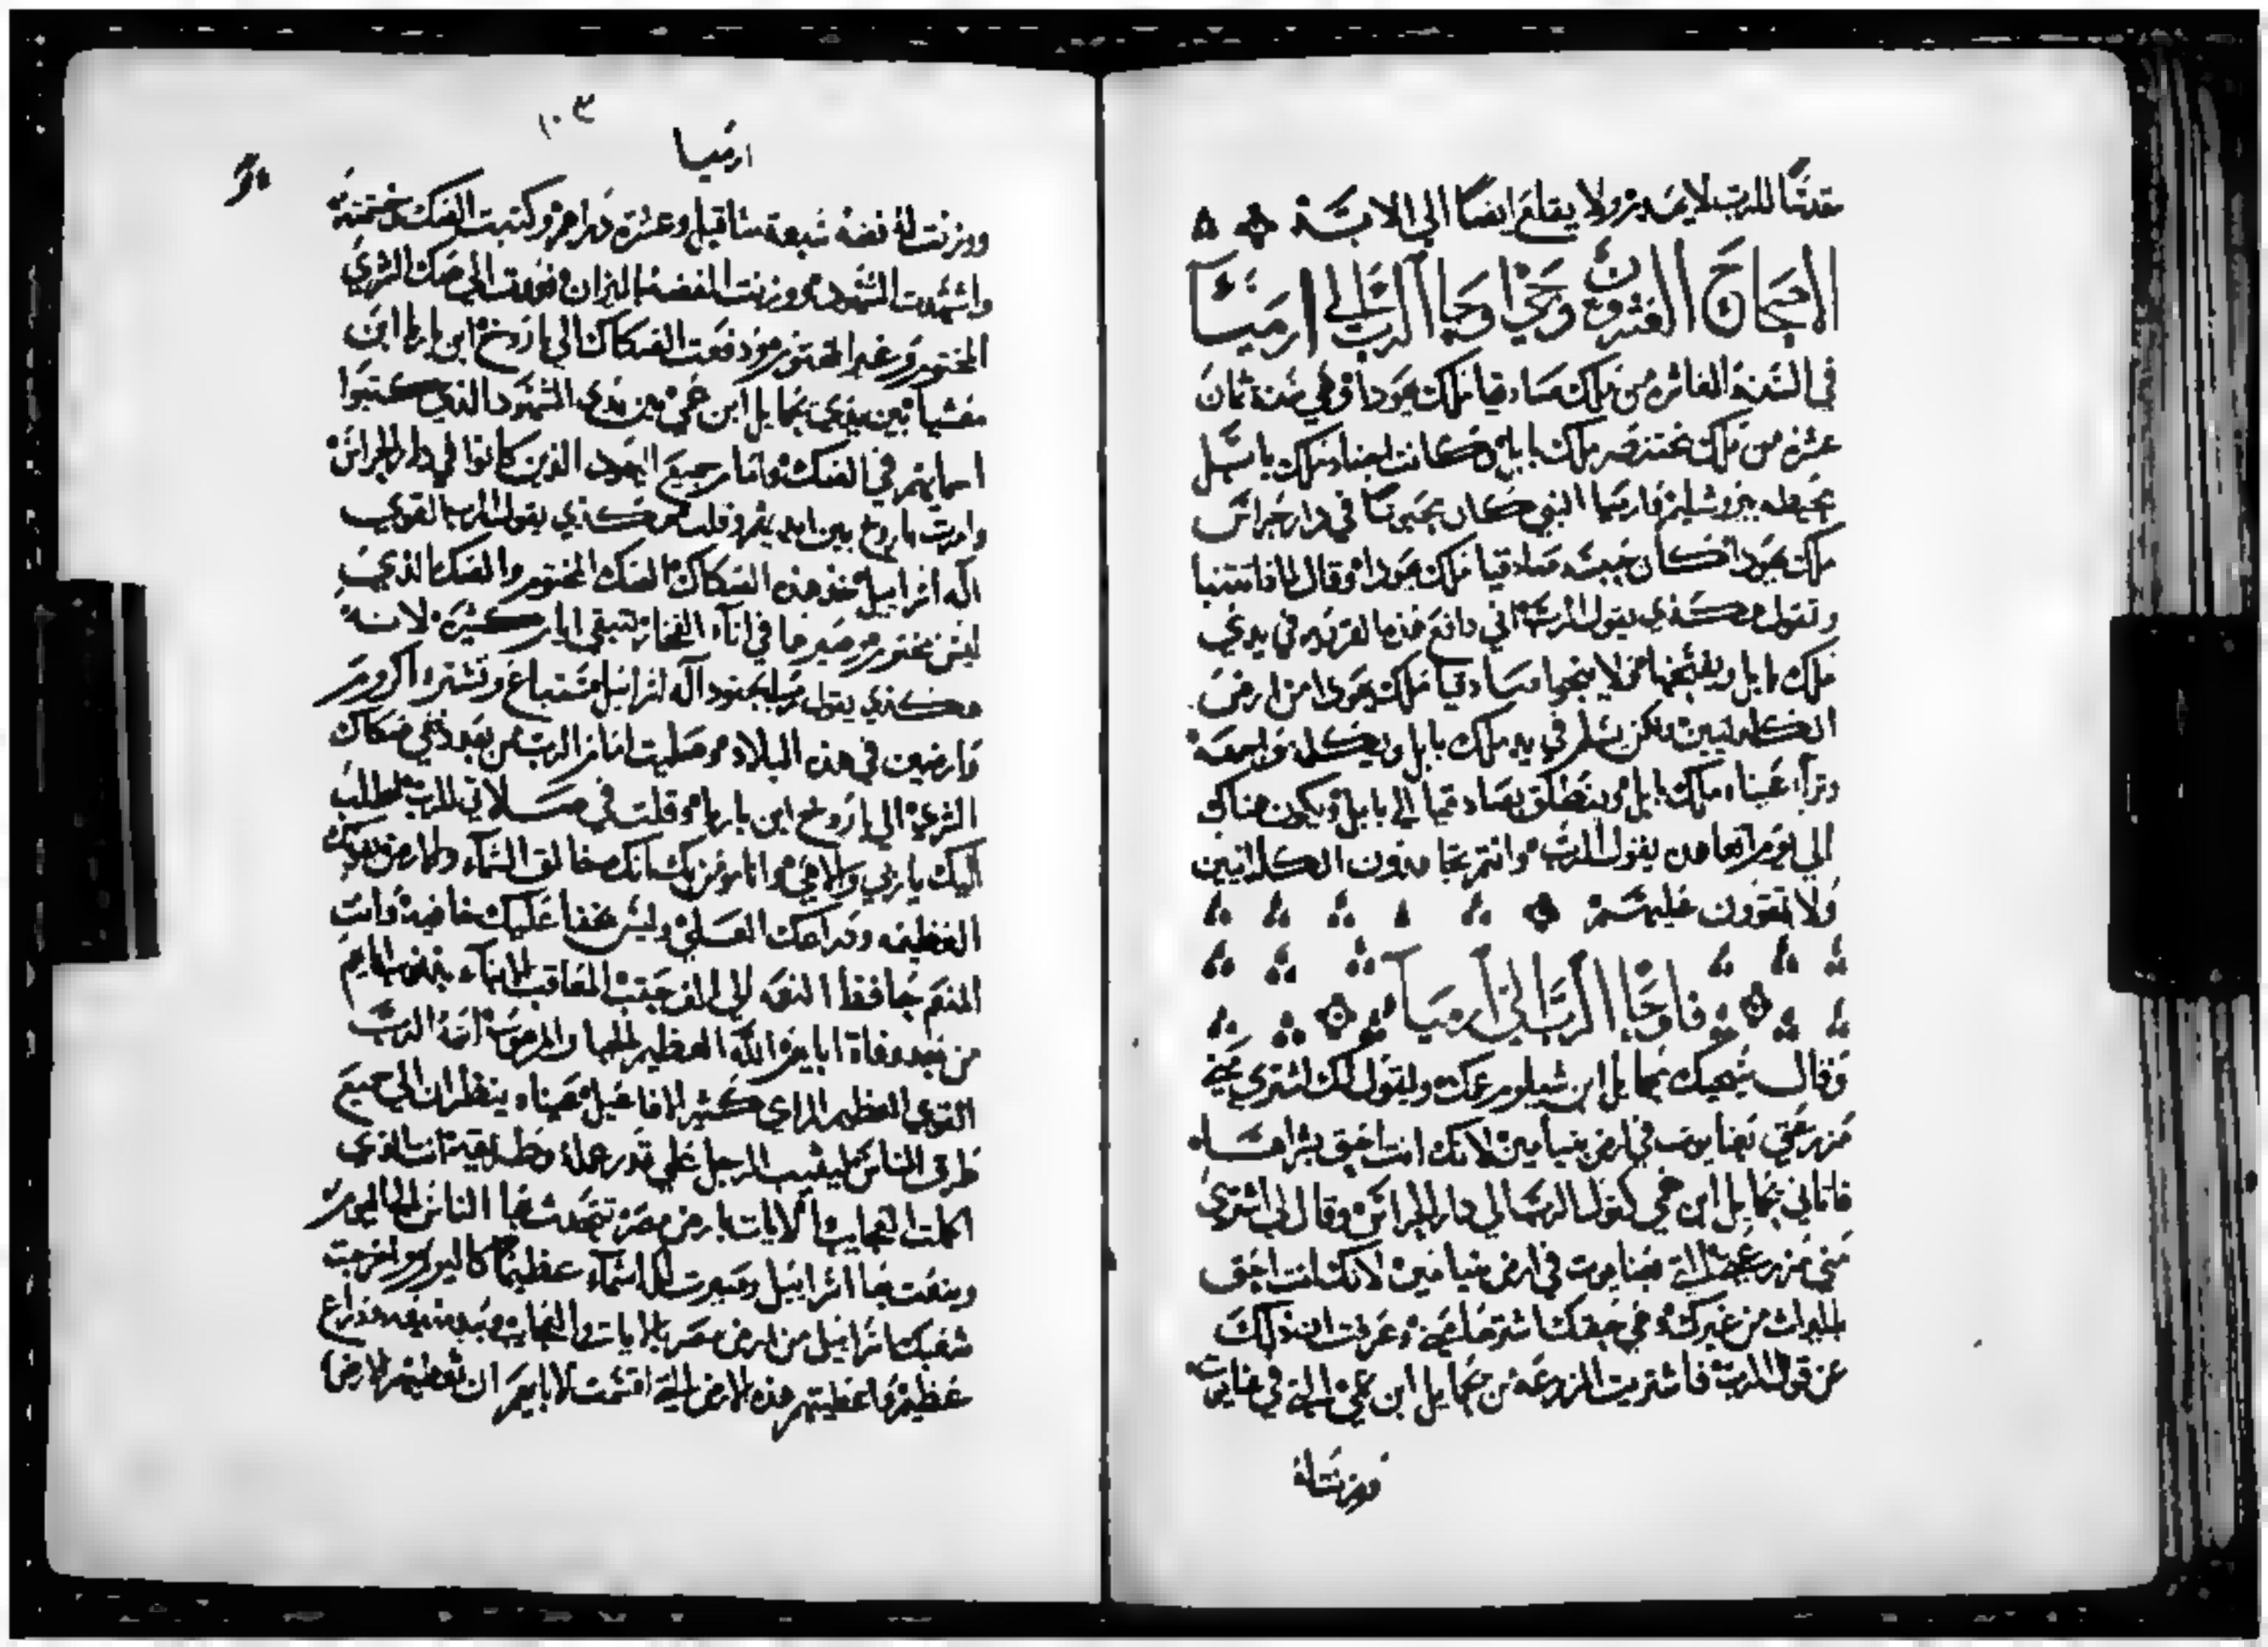 مقدسًا للرب لا يهدم ولا يقلع ايضًا الي الابد
الاصحاح العشرون وحي اوحاه الرب الي ارميا
في السنه العاشره من ملك صادقيا ملك يهودا وهي سنة ثمان
عشره من ملك بختنصر ملك بابل وكانت اجناد ملك بابل
محيطه بيروشليم وارميا النبي كان محبوسًا في دار حراس
ملك يهودا كان حبسه صادقيا ملك يهودا وقال لماذا تتنبا
وتقول هكذي يقول الرب اني دافع هذه القريه في يدي
ملك بابل ويفتحها ولا ينجوا صادقيا ملك يهودا من ارض
الكلدانيين ولكن يسلم في يد ملك بابل ويكلمه مواجهه
وترا عيناه ملك بابل وينطلق بصادقيا الي بابل ويكون هناك
الي يوم اتعاهده يقول الرب وانتم تجاهدون الكلدانيين
ولا تقوون عليهم
فاوحا الرب الي ارميا
وقال سيجيك نمايل ابن شيلوم عمك ويقول لك اشتري مني
مزرعتي بعناتوت في ارض بنيامين لانك انت احق بشراها
فاتاني نمايل ابن عمي كقول الرب الي دار الحراس وقال لي اشتري
مني مزرعتي التي بعناتوت في ارض بنيامين لانك انت احق
بالميراث من غيرك وهي حقك اشترها وعرفت ان ذلك
عن قول الرب فاشتريت المزرعه من نمايل ابن عمي التي في عناتوت
ووزنت له
١٠٣
ارميا
ووزنت له فضه سبعة مثاقيل وعشرة دراهم وكتبت الصك وختمته
واشهدت الشهود ووزنت الفضه بالميزان فعمدت الي صك الشري
المختوم وغير المختوم ودفعت الصكاك الي باروخ ابن ناريا ابن
معشيا بين يدي نمايل ابن عمي وبين يدي الشهود الذين كتبوا
اسمايهم في الصك وامام جميع اليهود الذين كانوا في دار الحراس
وامرت باروخ بين ايديهم وقلت هكذي يقول الرب القوي
اله اسراييل خذ هذه الصكاك الصك المختوم والصك الذي
ليس مختوم وصيرها في انآ الفخار لتبقي ايام كثيره لانه
هكذي يقول رب الجنود اله اسراييل ستباع وتشترا كروم
وارضين في هذه البلاد وصليت امام الرب من بعد دفعي صكاك
الشري الي باروخ ابن ناريا وقلت في صلاتي للرب اطلب
اليك يا ربي والاهي وانا مومن بك بانك خالق السمآ والارض بقوتك
العظيمه وذراعك العالي وليس يخفا عليك خافيه وانت
المنعم حافظ النعمه الي الف حقب المعاقب الابنآ بذنوب ابايهم
من بعد وفاة ابايهم الله العظيم الجبار المرهوب اسمه الرب
القوي العظيم الراي كثير الافاعيل عيناه ينظران الي جميع
طرق الناس ليثيب الرجل علي قدر عمله وطريقته انت الذي
اكملت العجايب والايات بارض مصر تتحدث بها الناس الي اليوم
وصنعت بها اسراييل وصيرت لك اسمآ عظيمًا كاليوم واخرجت
شعبك اسراييل من ارض مصر بالايات والعجايب وبيد منيعه وذراع
عظيم واعطيتهم هذه الارض التي اقسمت لابايهم ان تعطيهم الارض